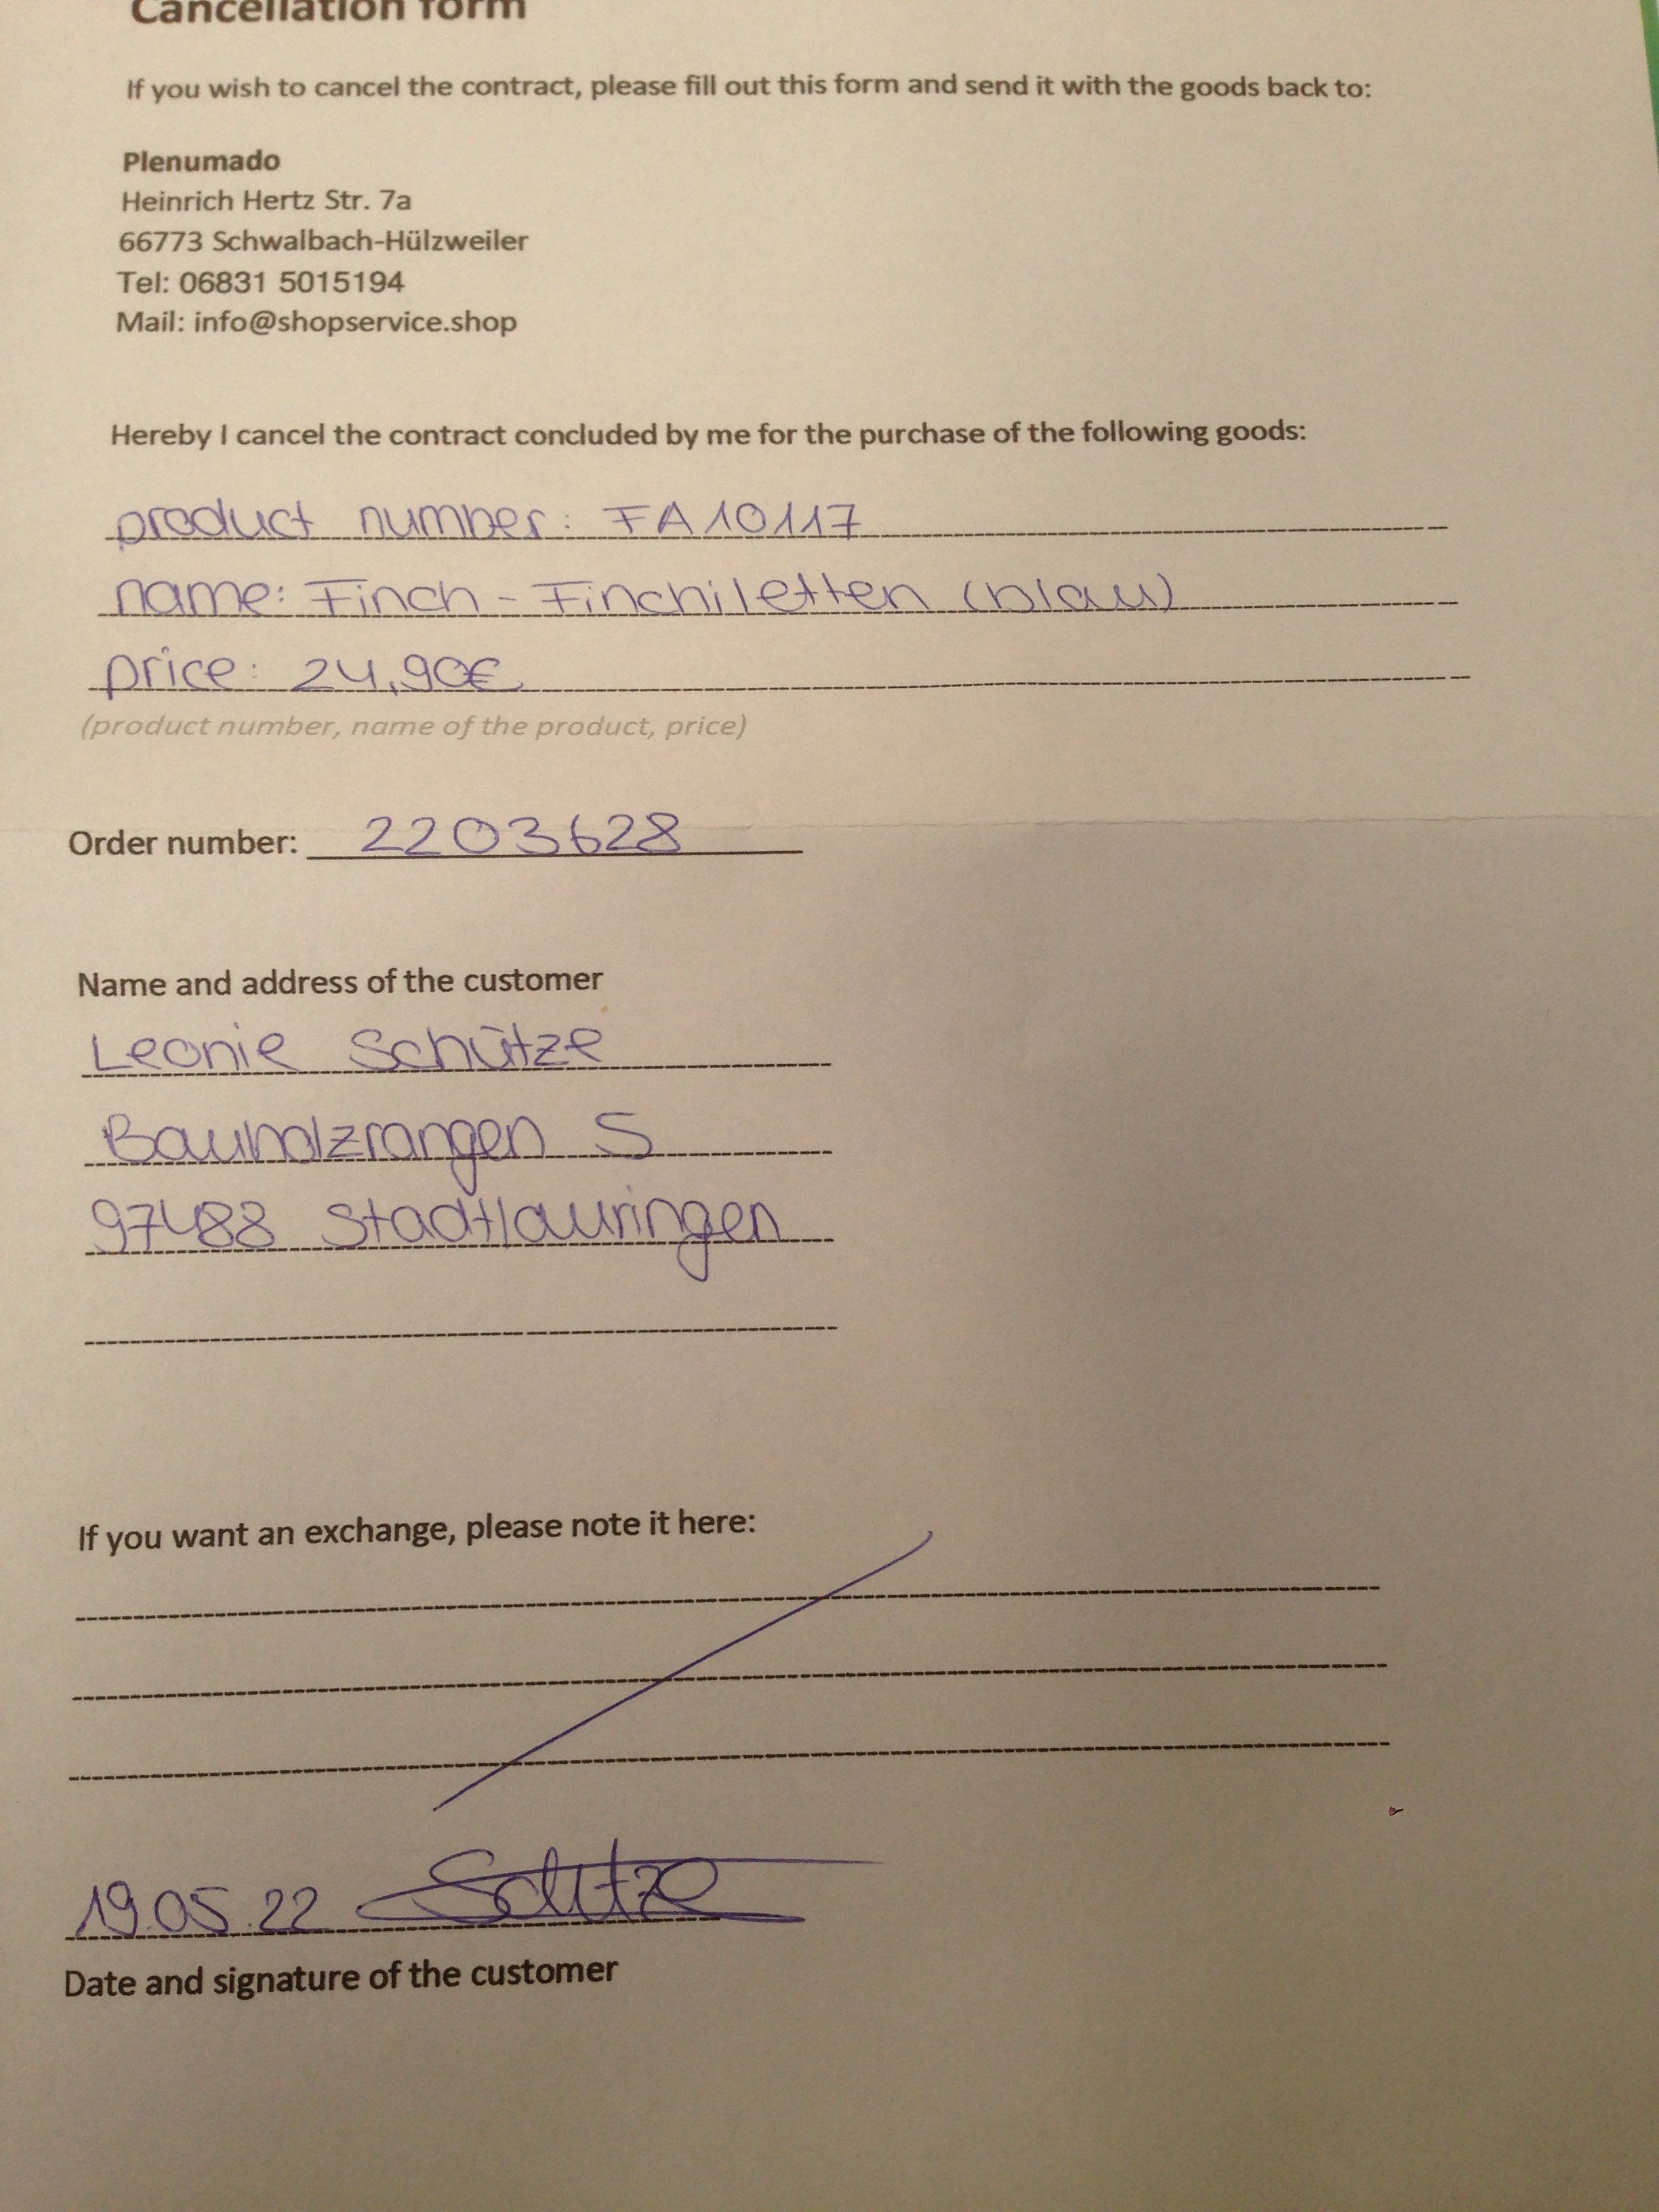 Cancellation form
If you wish to cancel the contract, please fill out this form and send it with the goods back to:
Plenumado
Heinrich Hertz Str. 7a
66773 Schwalbach-Hülzweiler
Tel: 06831 5015194
Mail: info@shopservice.shop
Hereby I cancel the contract concluded by me for the purchase of the following goods:
product number: FA10117
name: Finch - Finchiletten (blau)
price: 24,90€
(product number, name of the product, price)
Order number: 2203628
Name and address of the customer
Leonie Schütze
Bauholzrangen 5
97488 Stadtlauringen
If you want an exchange, please note it here:
19.05.22 Schütze
Date and signature of the customer